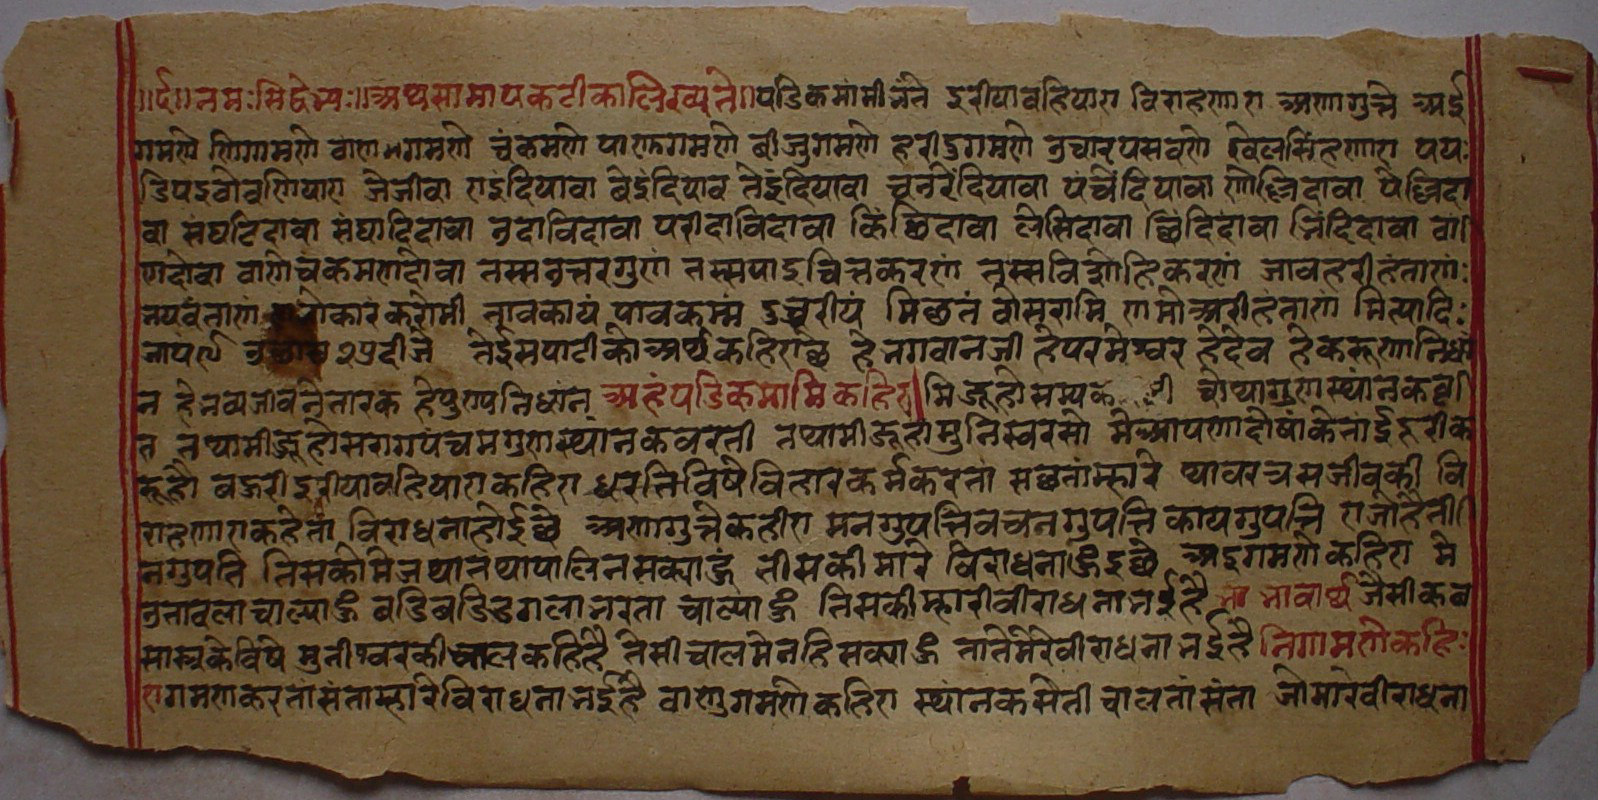 ॥र्द॥ नमः सिद्धेभ्यः॥ अथ सामायक टीका लिख्यते॥ पडिकमामी भंते इरीयावहियाए विराहणाए अणागुत्ते अई
गमणे णिगमणे वाणुगमणे चंकमणे पाणुगमणे बीजुगमणे हरीदुगमणे उचारपसवणे खेलसिंहणाए पयः
डिपइवोवणियाए जेजीवा एइंदियावा बेइंदियाव तेइंदियावा चउरेंदियावा पंचेंदियावा णोल्लिदावा पेल्लिदा
वा संघटिदावा संघादिदावा उदाविदावा परीदाविदावा किंछिदावा लेसिदावा छिदिदावा भिंदिदावा वा
णदोवा वाणोचंकमणदोवा तस्सउत्तरगुणं तस्सपाइछितकरणं तस्सविसोहिकरणं जावहरीहंताणंः
भयवंताणं णोकारं करोमी तावकायं पावकम्मं दुचरीयं मिछतं वोसरामि णमोअरीहंताणं मित्यादिः
जापर्त्थ २७ दीजे तेईसपाटीको अर्थ कहिएछे हे भगवानजी हेपरमेश्वर हेदेव हेकरूणानिधां
न हेभव्यजीवनैतारक हेपुण्यनिधांन् अहंपडिकमामि कहिए मिजूहोसम्यक ती चोथागुणस्थांनकव
त तथामीजूहोसरागपंचमगुणस्थांनकवरती तथामीजूहामुनिस्वरसो मेआपणादोषांकेतांई दूरीक
रूहो बजरी इरीयावहियाएकहिए धरतिविषेविहारकर्मकरता सछतांम्हारे थावरत्रसजीवकी वि
राहणाएकहेतां विराधनाहोईछे अणागुत्तेकहीए मनगुपत्तिवचनगुपत्ति कायगुपत्ति एजोहेती
नगुपति तिसकोमेजथातथापालिनसक्याहूं तीसकीमारे विराधनाहूंइछे अइगमणेकहिए मे
उतावलाचाल्याहूं बडिबडिडगलाभरता चाल्याहूं तिसकीम्हारीवीराधनाभईहै भावार्थ जैसीकब
सास्त्रकेविषे मुनीश्वरकीचालकहिहै तेसीचालमेनहिसक्याहूं तातेमेरेवीराधनाभईहै निगामणेकहिः
एगमणकरतांसंतांम्हारेविराधनाभईहै वाणुगमणेकहिए स्थांनकसेती चालतांसंता जोमारेवीराधना